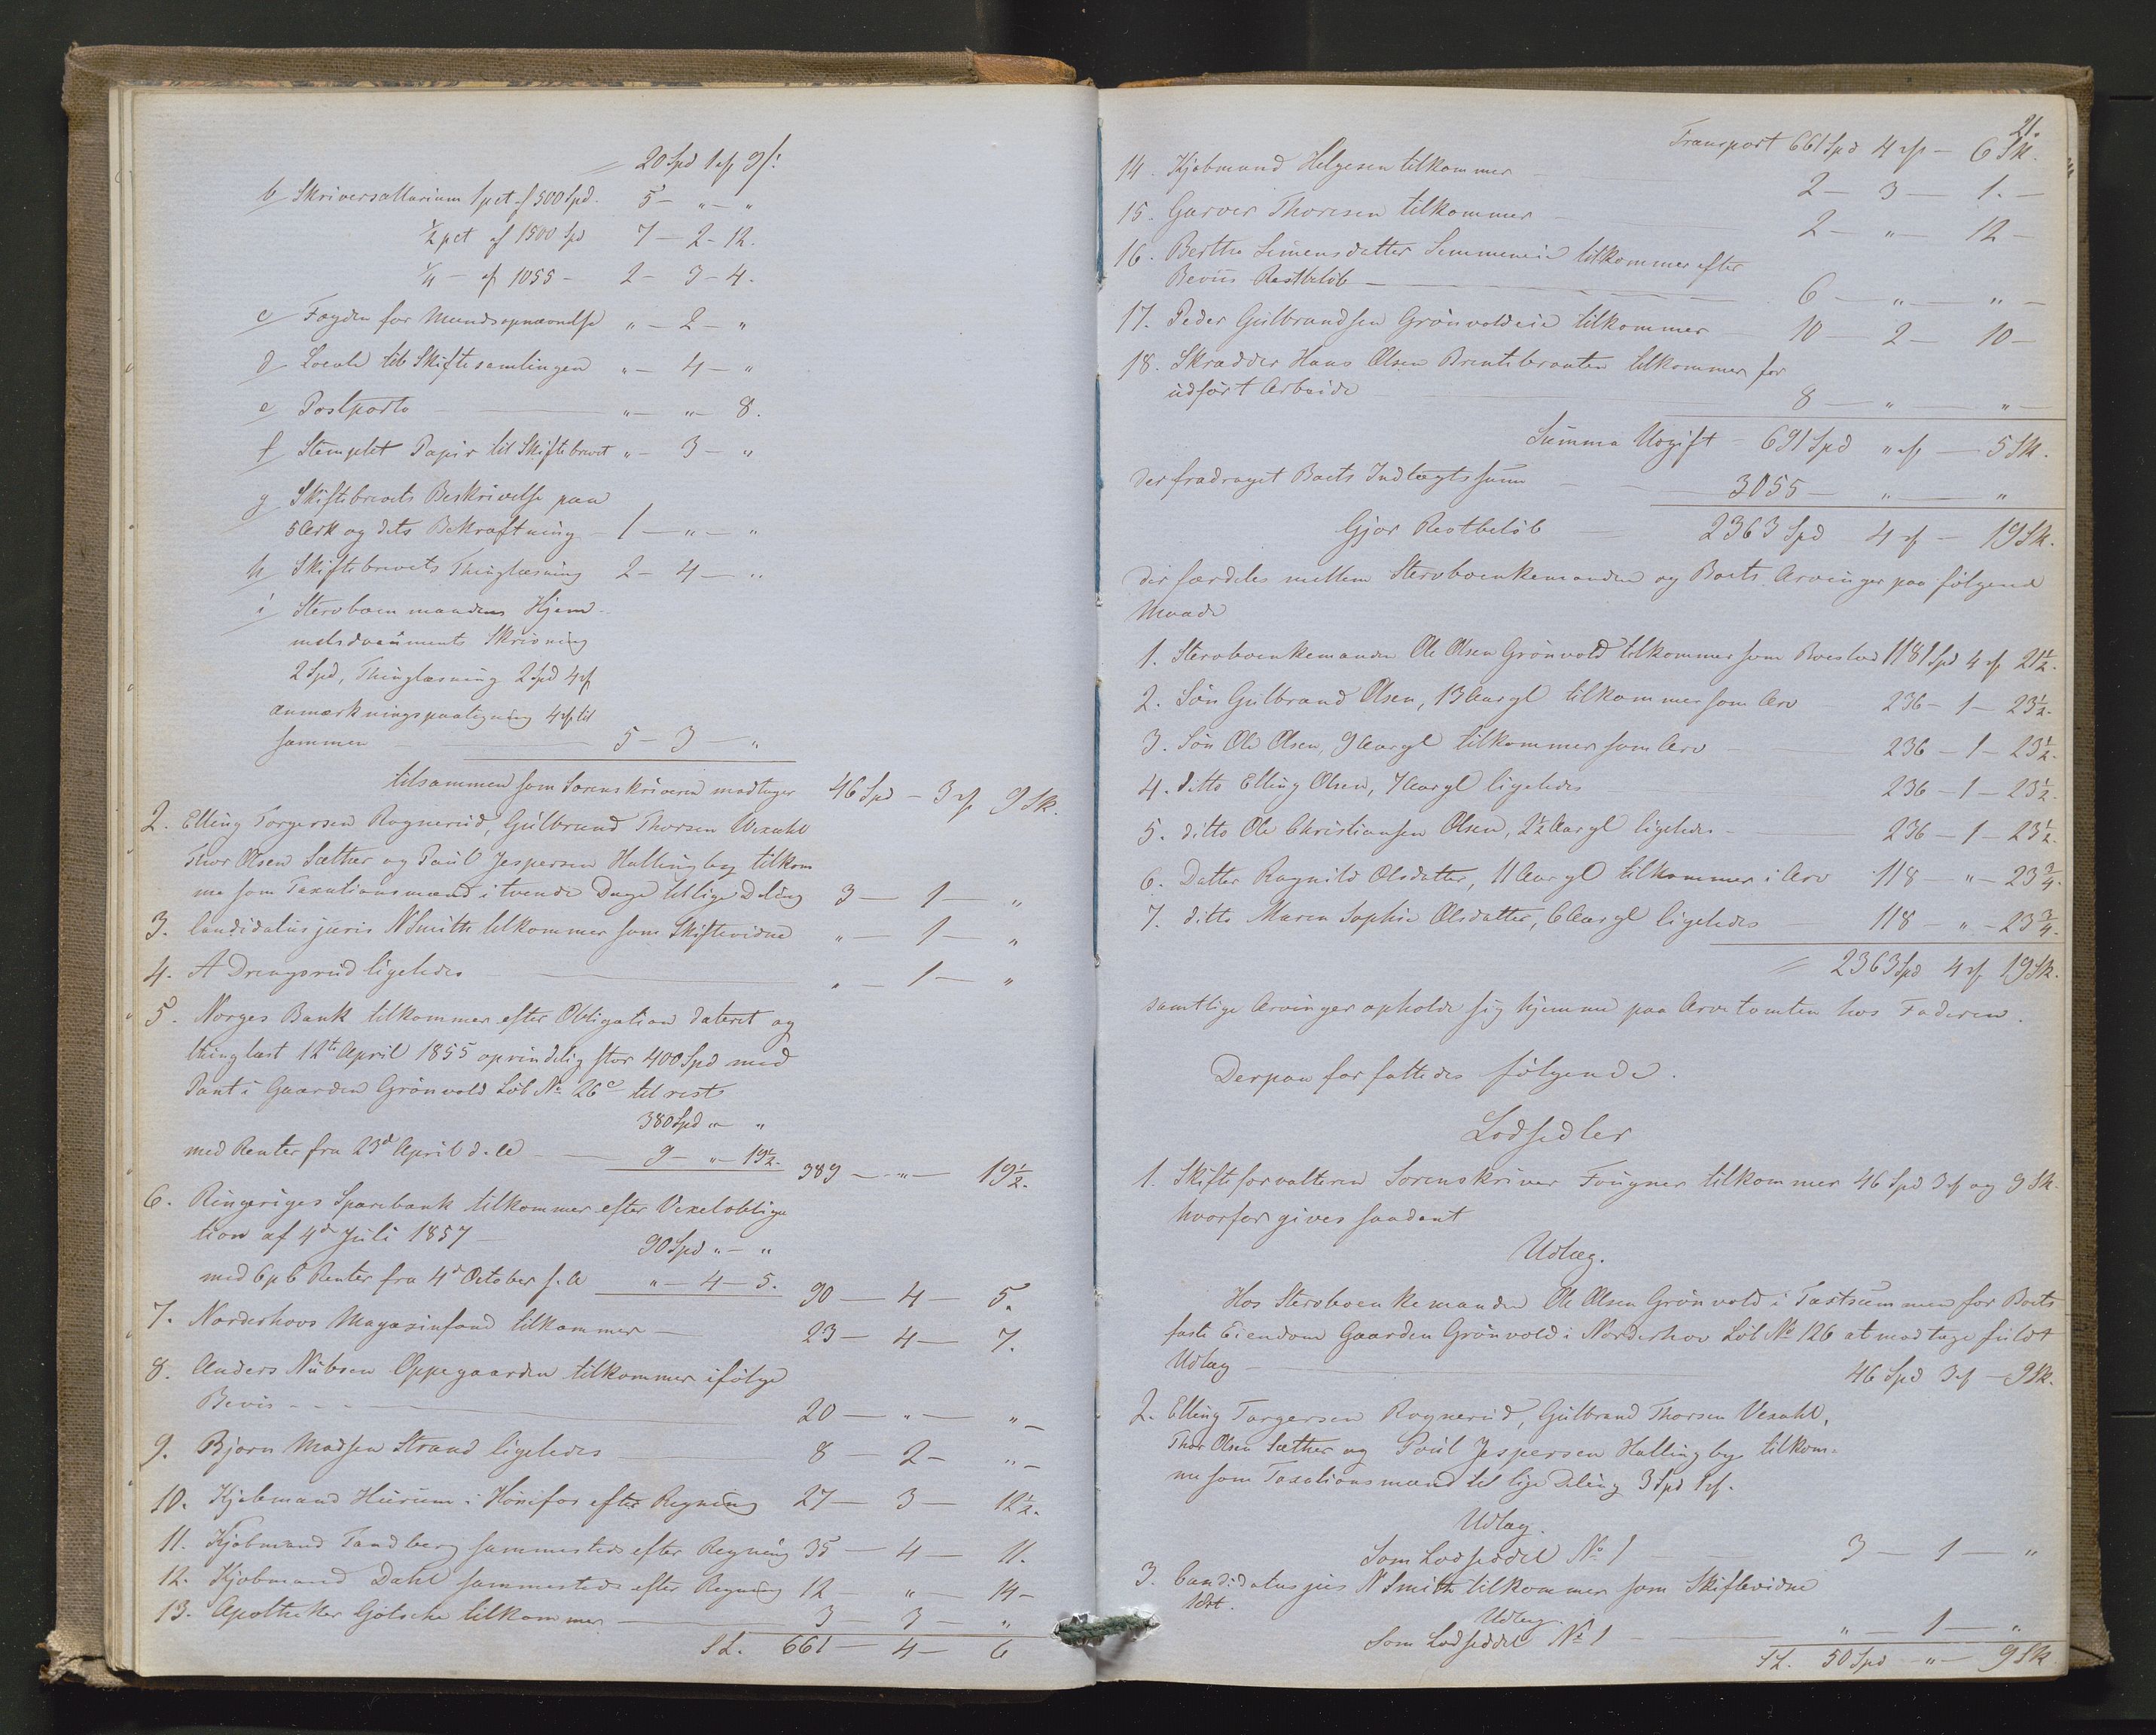 = 20 Spd 1 ₰ 9 ſ:
b/ Skriversallarium 1 pct af 500 Spd. 5 - " - "
½ pct af 1500 Spd 7 - 2 - 12.
¼ - af 1055 - 2 - 3 - 4.
c/ Fogden for Mandsopnævnelse " - 2 - "
d/ Locale til Skiftesamlingen " - 4 - "
e/ Postporto " - " - 8.
f/ Stemplet Papir til Skiftebrevet " - 3 - "
g/ Skiftebrevets Beskrivelse paa
5 Ark og dets Bekræftning - 1 - " - "
h/ Skiftebrevets Thinglæsning 2 - 4 - "
i/ Stervboenmandens Hjem-
melsdocuments Skrivning
2 Spd, Thinglæsning 2 Spd 4 ₰
anmærkningspaategning 4 ₰ til
sammen 5 - 3 - "
tilsammen som Sorenskriveren modtager 46 Spd - 3 ₰ 9 Sk.
2. Elling Torgersen Rognerud, Gulbrand Thorsen Vexahl
Thor Olsen Sæther og Paul Jespersen Hallingby tilkom
me som Taxationsmænd i tvende Dage til lige Deling 3 - 1 - "
3. Candidatus juris N Smith tilkommer som Skiftevidne " - 1 - "
4. A Drengsrud ligeledes " - 1 - "
5. Norges Bank tilkommer efter Obligation dateret og
thinglæst 12te April 1855 oprindelig stor 400 Spd med
Pant i Gaarden Grønvold Løb No 26c til rest
380 Spd " "
med Renter fra 23d April d. A 9 - " - 19½. 389 - " - 19½.
6. Ringeriges Sparebank tilkommer efter Vexelobliga
tion af 4de Juli 1857 - 90 Spd " - "
med 6 p C Renter fra 4d October f. A " - 4 - 5. 90 - 4 - 5.
7. Norderhovs Magazinfond tilkommer - 23 - 4 - 7.
8. Anders Nubsen Oppegaarden tilkommer ifølge
Bevis - 20 - " - " -
9. Bjørn Madsen Strand ligeledes 8 - 2 - " -
10. Kjøbmand Hurum i Hønefos efter Regning 27 - 3 - 12½.
11. Kjøbmand Tandberg sammesteds efter Regning 35 - 4 - 11.
12. Kjøbmand Dahl sammesteds efter Regning 12 - " - 14 -
13. Apotheker Gjøtsche tilkommer 3 - 3 - "
S L. 661 - 4 - 6
21.
Transport 661 Spd 4 ₰ - 6 Sk.
14. Kjøbmand Helgesen tilkommer 2 - 3 - 1. -
15. Garver Thoresen tilkommer 2 - " - 12 -
16. Berthe Simensdatter Semmeneie tilkommer efter
Beviis Restbeløb - 6 - " - " -
17. Peder Gulbrandsen Grønvoldeie tilkommer 10 - 2 - 10 -
18. Skrædder Hans Olsen Brentebraaten tilkommer for
udført Arbeide 8 - " - " -
Summa Udgift = 691 Spd " ₰ - 5 Sk.
der fradraget Boets Indtægtssum 3055 - " - "
Gjør Restbeløb 2363 Spd 4 ₰ - 19 Sk.
der fordeles mellem Stervboenkemanden og Boets Arvinger paa følgende
Maade
1. Stervboenkemanden Ole Olsen Grønvold tilkommer som Boeslod 1181 Spd 4 ₰ 21½.
2. Søn Gulbrand Olsen, 13 Aar gl tilkommer som Arv 236 - 1 - 23½.
3. Søn Ole Olsen, 9 Aar gl tilkommer som Arv 236 - 1 - 23½.
4. ditto Elling Olsen, 7 Aar gl ligeledes 236 - 1 - 23½.
5. ditto Ole Christiansen Olsen, 2½ Aar gl ligeledes - 236 - 1 - 23½.
6. Datter Ragnild Olsdatter, 11 Aar gl tilkommer i Arv 118 - " - 23¾.
7. ditto Maren Sophie Olsdatter, 6 Aar gl ligeledes 118 - " - 23¾.
= 2363 Spd 4 ₰ 19 Sk.
samtlige Arvinger opholde sig hjemme paa Arvetomten hos Faderen.
Derpaa forfattedes følgende.
Lodsedler
1. Skifteforvalteren Sorenskriver Fougner tilkommer 46 Spd 3 ₰ og 9 Sk.
hvorfor gives saadant
Udlæg.
Hos Stervboenkemanden Ole Olsen Grønvold i Taxtsummen for Boets
faste Eiendom Gaarden Grønvold i Norderhov Løb No 126 at modtage fuldt
Udlæg 46 Spd 3 ₰ - 9 Sk.
2. Elling Torgersen Rognerud, Gulbrand Thorsen Vexahl,
Thor Olsen Sæther og Poul Jespersen Hallingby tilkom=
me som Taxationsmænd til lige Deling 3 Spd 1 ₰.
Udlæg.
Som Lodseddel No 1 3 - 1 - "
3. Candidatus juris N Smith tilkommer som Skiftevidne
1 Ort.
Udlæg.
Som Lodseddel No 1 " - 1 - "
S L. 50 Spd - " - 9 Sk